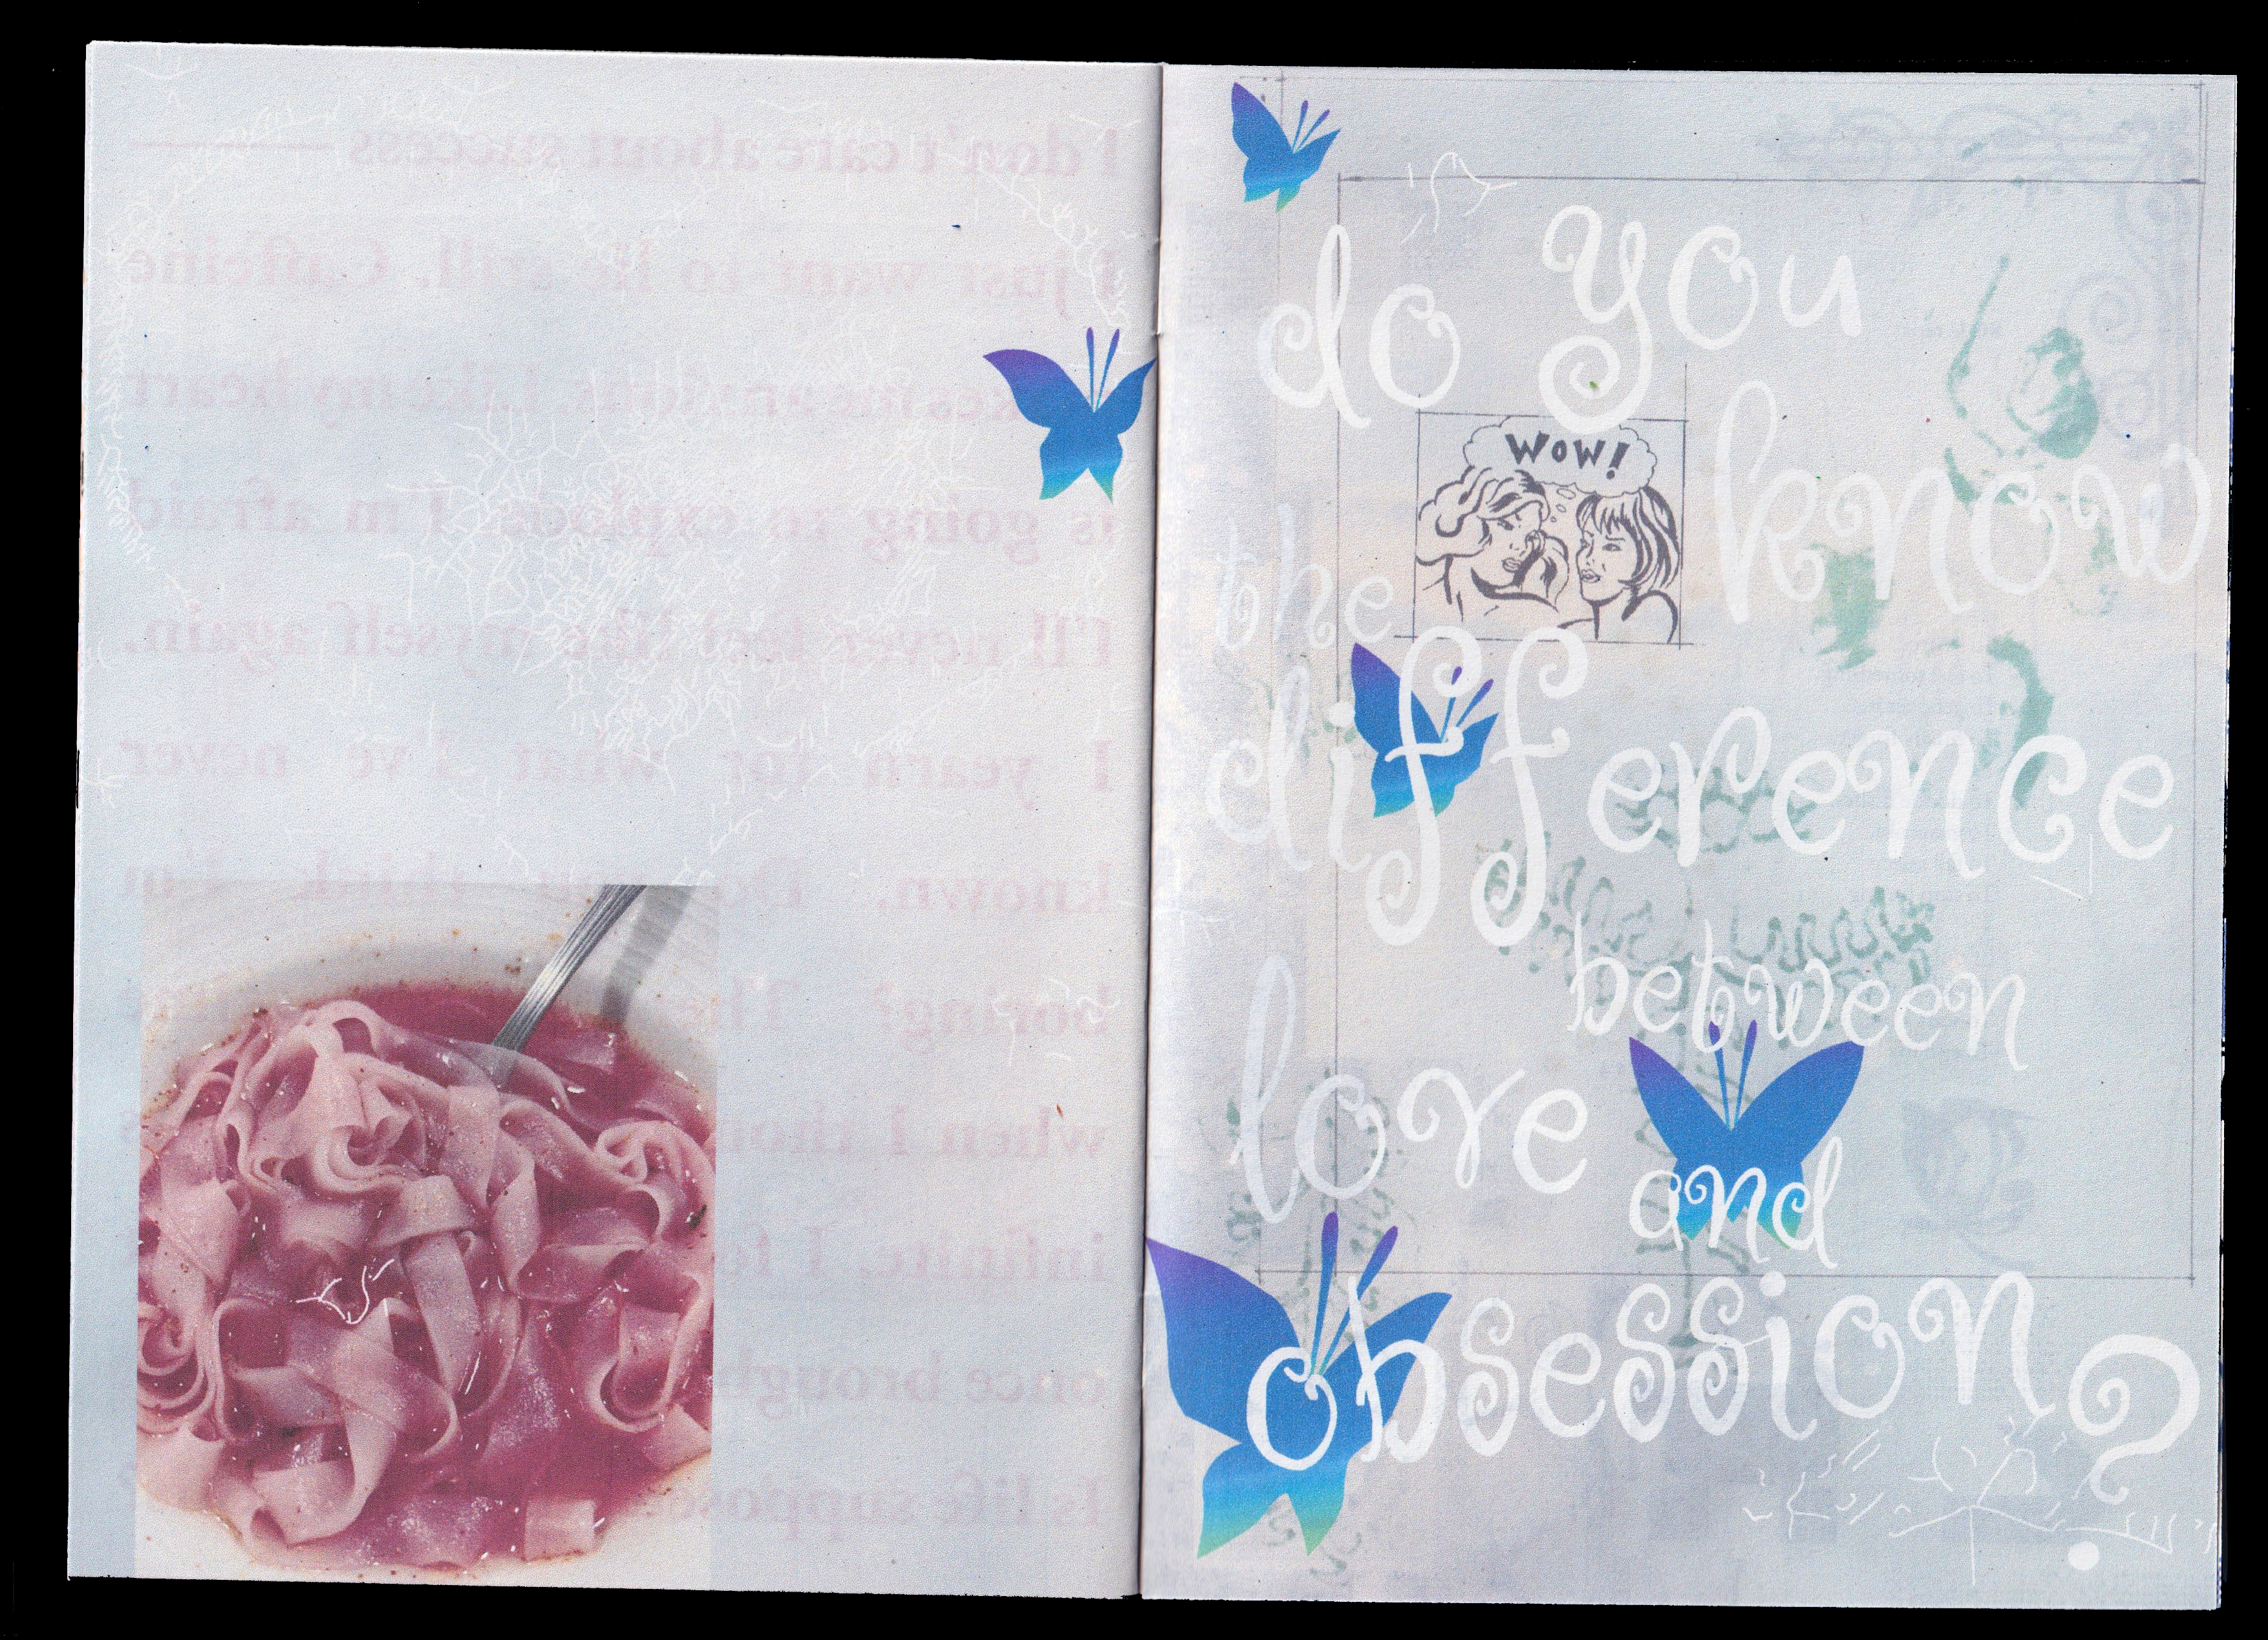 I don't care about success
I just want to lie still. Caffeine
my heart
is going to explode. I'm afraid
I'll never feel like myself again.
I yearn for what I've never
known. Do you think I'm
boring?
when I
infinite. I
once
Is life
do you
WOW!
know
the
difference
between
love
and
obsession?